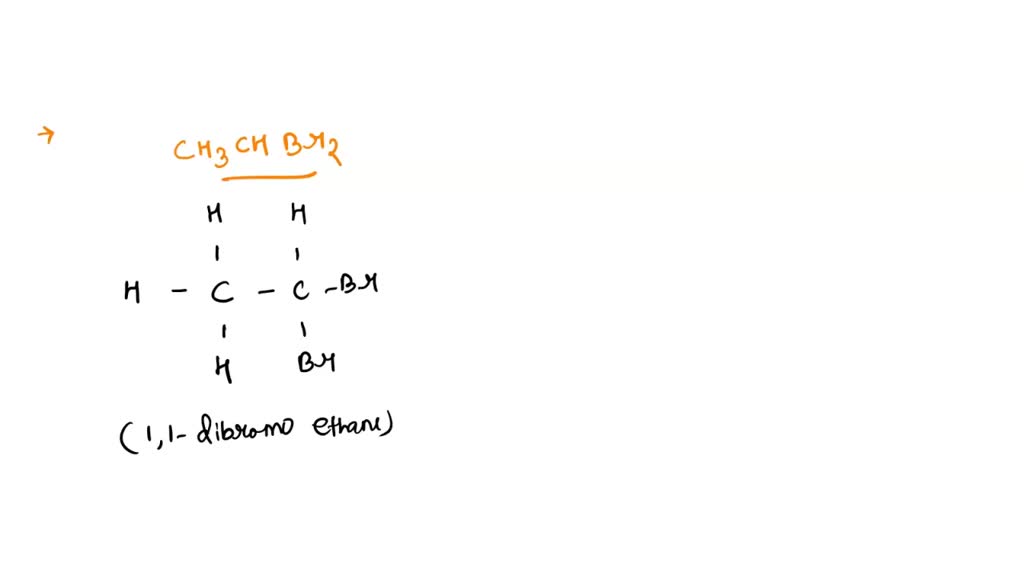 →
CH3CHBr2
H H
| |
H - C - C - Br
| |
H Br
(1,1- dibromo ethane)